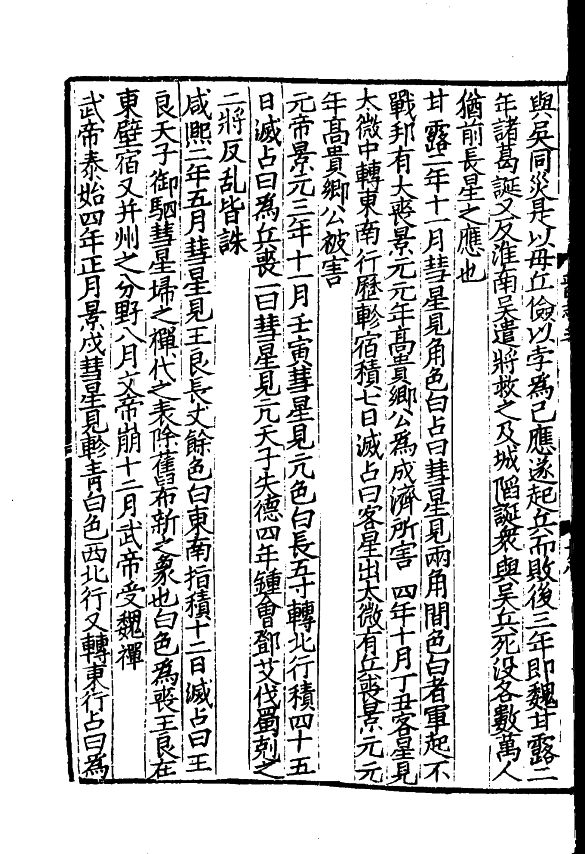 與吳同災是以毋丘儉以孛為己應遂起兵而敗後三年即魏甘露二
年諸葛誕又反淮南吳遣將救之及城陷誕衆與吳兵死没各數萬人
猶前長星之應也
甘露二年十一月彗星見角色白占曰彗星見兩角間色白者軍起不
戰邦有大喪景元元年髙貴鄉公為成濟所害 四年十月丁丑客星見
太微中轉東南行歷軫宿積七日滅占曰客星出太微有兵喪景元元
年髙貴鄉公被害
元帝景元三年十一月壬寅彗星見亢色白長五寸轉北行積四十五
日滅占曰為兵喪一曰彗星見亢天子失德四年鍾會鄧艾伐蜀剋之
二將反乱皆誅
咸熈二年五月彗星見王良長丈餘色白東南指積十二日滅占曰王
良天子御駟彗星埽之禪代之表除舊布新之象也白色為喪王良在
東壁宿又并州之分野八月文帝崩十二月武帝受魏禪
武帝泰始四年正月景戌彗星見軫青白色西北行又轉東行占曰為